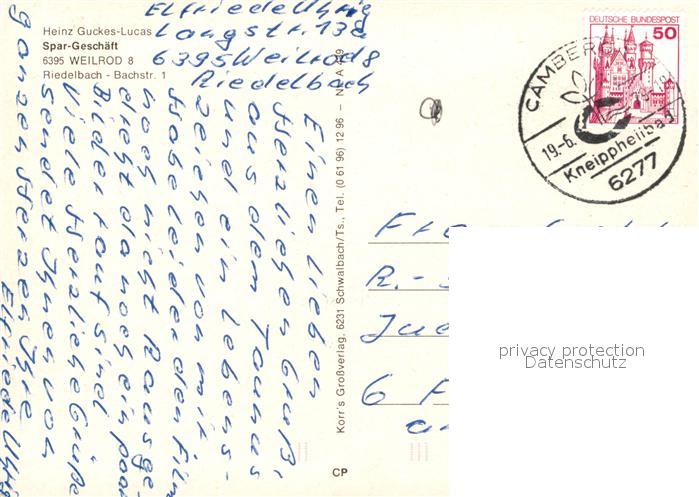 Heinz Guckes-Lucas
Spar-Geschäft
6395 WEILROD 8
Riedelbach - Bachstr. 1
Elfriede Uhrig
Langstr. 13a
6395 Weilrod 8
Riedelbach
Einen lieben
Herzlichen Gruß,
aus dem Taunus
und ein Lebens-
zeichen von mir
Habe leider den Film
noch nicht Rausge-
dreht da noch ein paar
Bilder drauf sind
Viele Herzliche Grüße
sendet Ihnen von
ganzen Herzen Ihre
Elfriede Uhrig
Korr's Großverlag, 6231 Schwalbach/Ts., Tel. (0 61 96) 12 96 – Nr. A
CP
DEUTSCHE BUNDESPOST
50
CAMBERG
19.-6.
Kneippheilbad
6277
R.-
6 F
privacy protection
Datenschutz